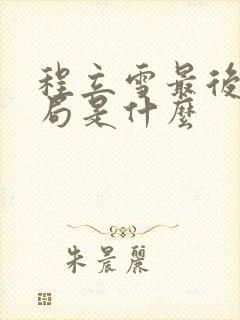 程立雪最後
局是什麼
朱晨麗